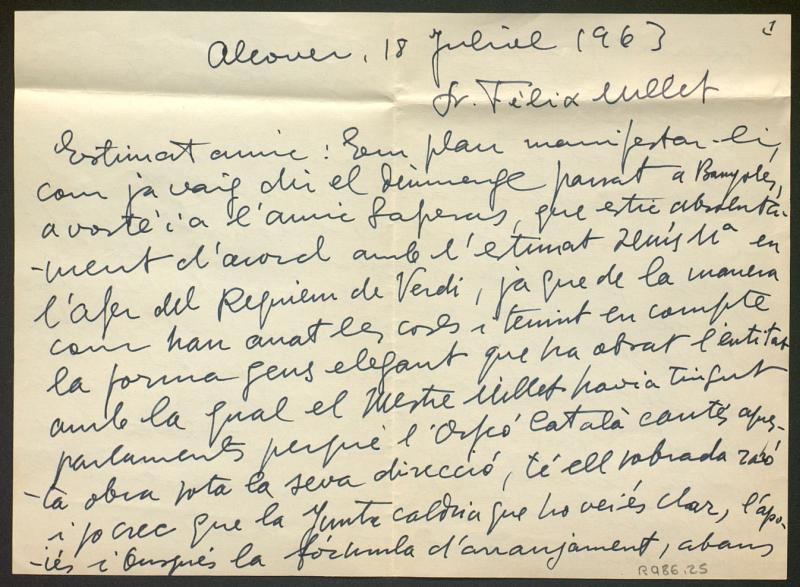 1
Alcover, 18 Juliol 1963
Sr. Fèlix Millet
Estimat amic: Em plau manifestar-li,
com ja vaig dir el diumenge passat a Banyoles,
a vostè i a l'amic Saperas, que estic absoluta-
-ment d'acord amb l'estimat Lluís Mª en
l'afer del Requiem de Verdi, ja que de la manera
com han anat les coses i tenint en compte
la forma gens elegant que ha obrat l'entitat
amb la qual el Mestre Millet havia tingut
parlaments perquè l'Orfeó Català cantés aques-
-ta obra sota la seva direcció, té ell sobrada raó
i jo crec que la Junta caldria que ho veiés clar, l'apo-
-iés i busqués la fórmula d'arranjament, abans
R986.25